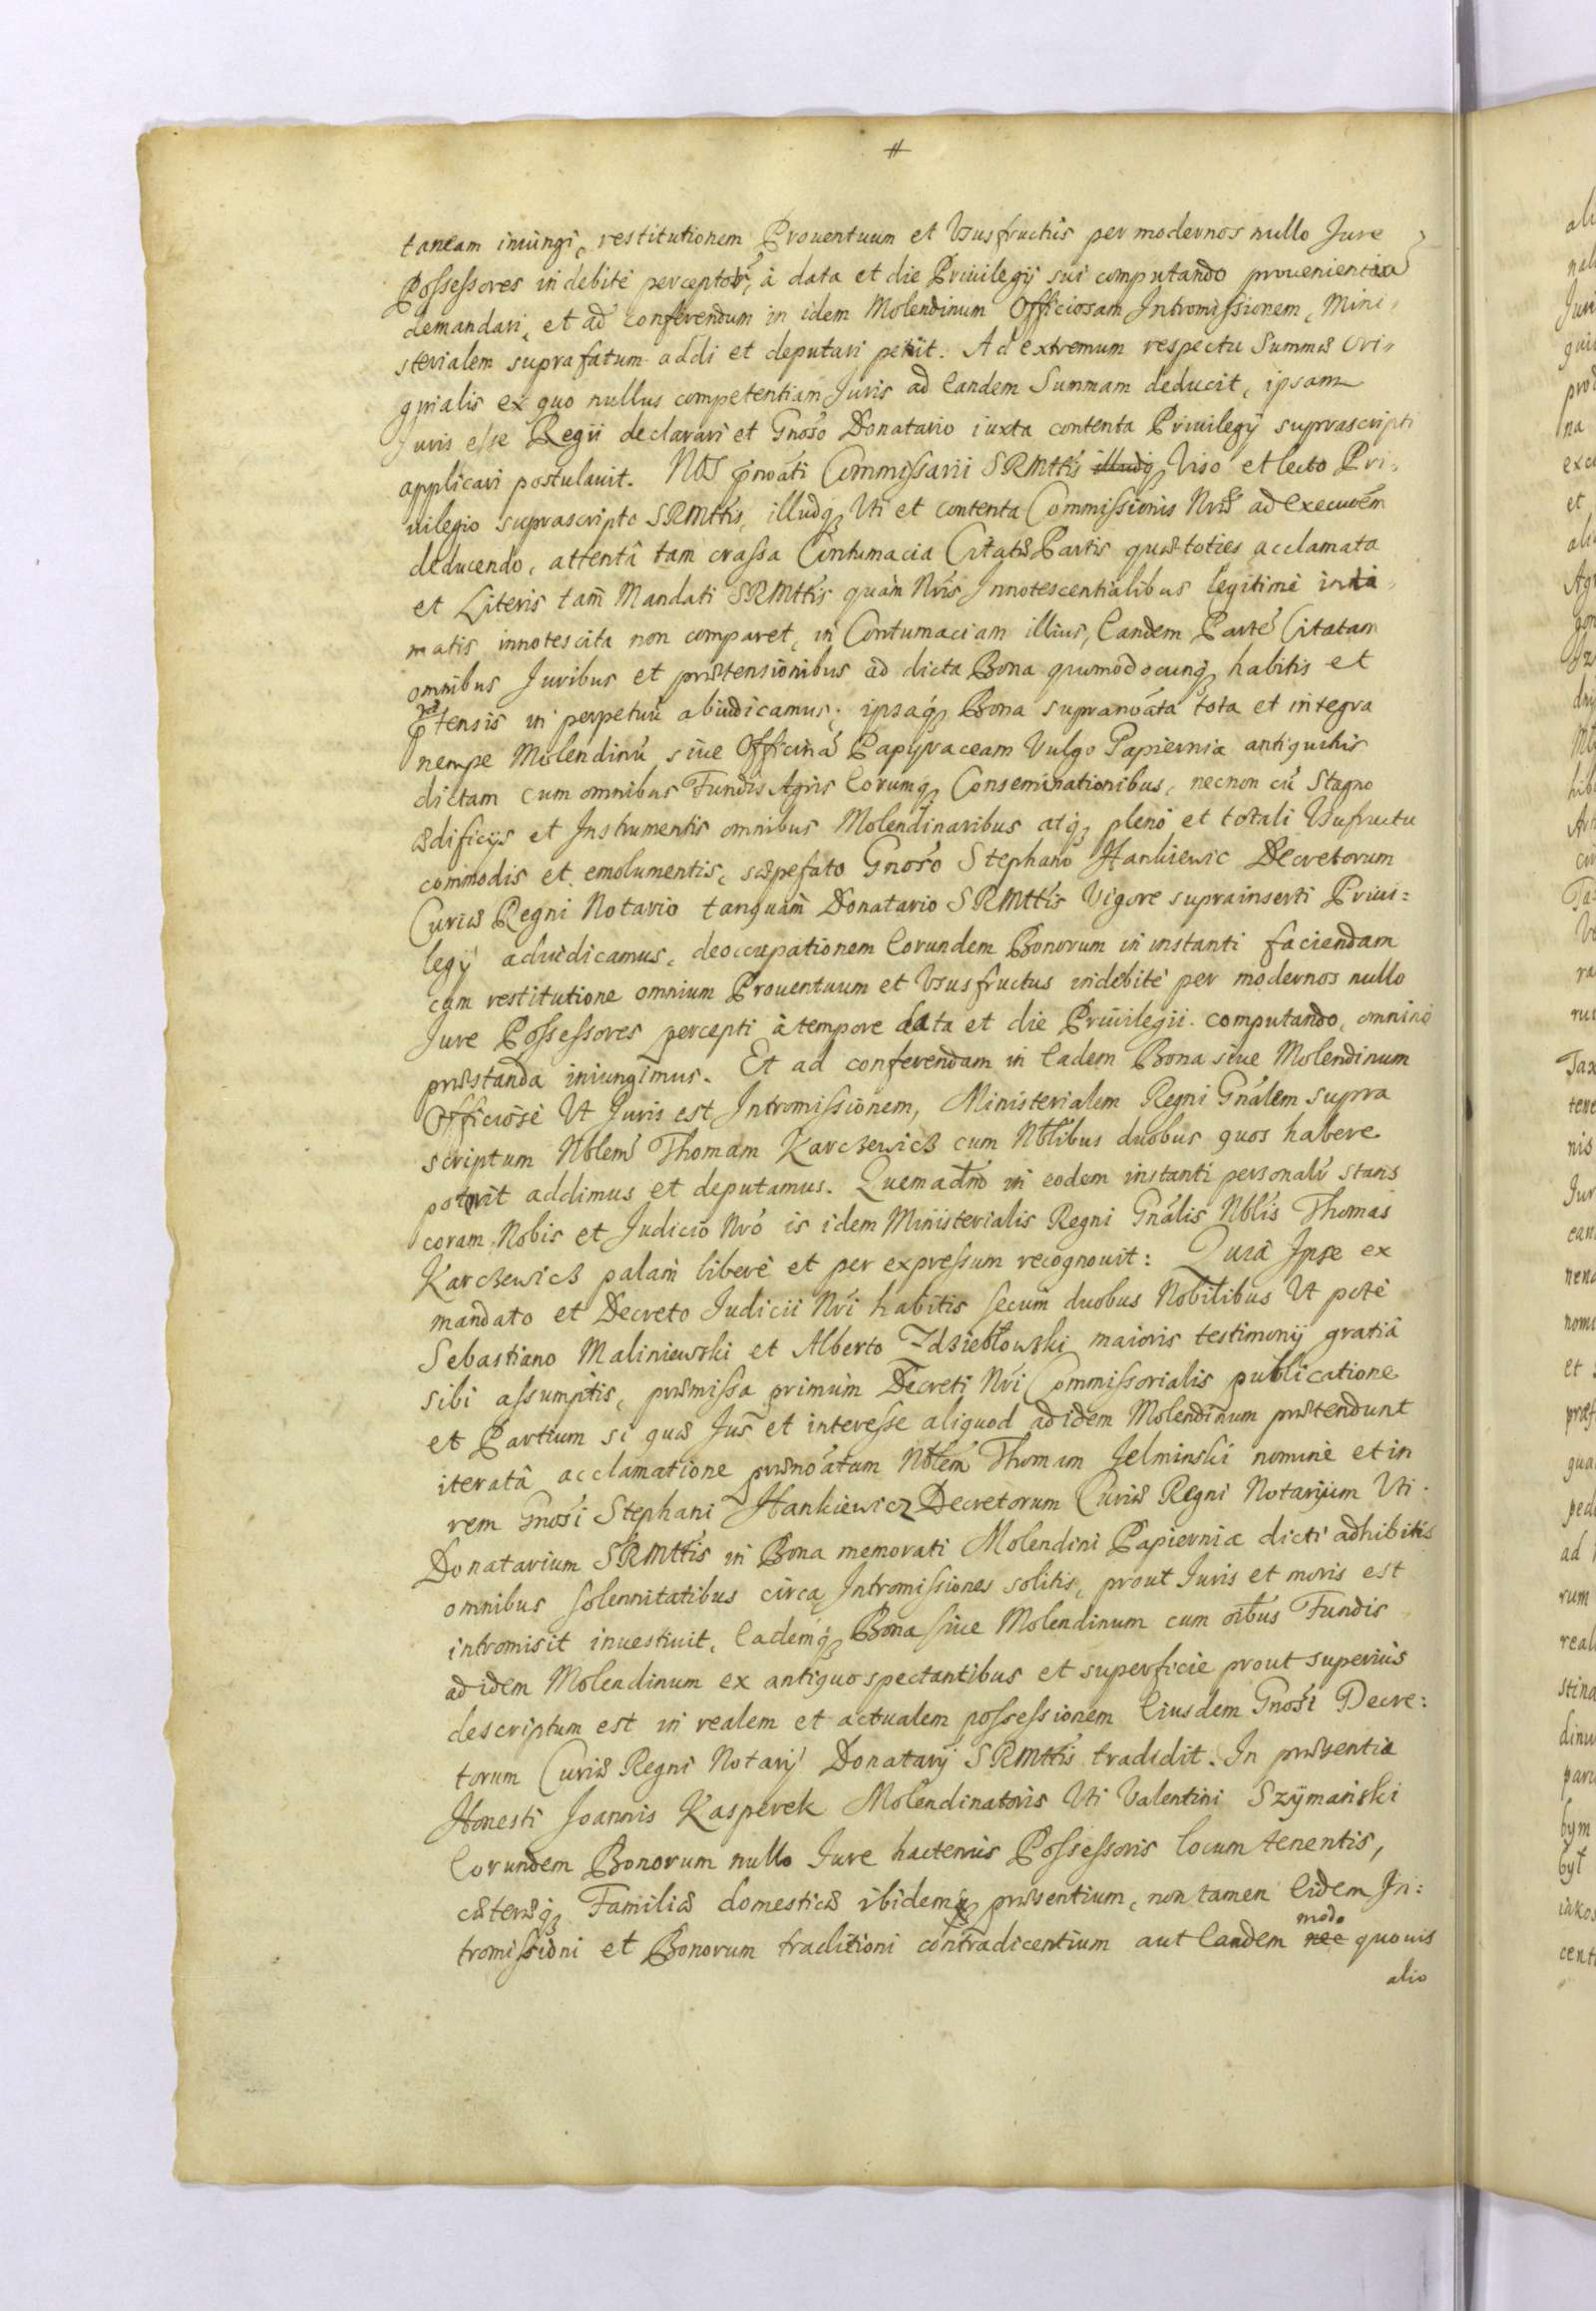 #
taneam iniungi, restitutionem Prouentuum et Vsusfructus per modernos nullo Jure
Possessores indebite perceptorũ, à data et die Priuilegÿ sui computando prouenientium
demandari, et ad conferendum in idem Molendinum Officiosam Intromissionem, Mini,
sterialem suprafatum addi et deputari petiit. Ad extremum respectu Summæ Ori,,
ginalis ex quo nullus competentiam Juris ad Eandem Summam deducit, ipsam
Juris esse Regii declarari et Gnoso Donatario iuxta contenta Priuilegÿ suprascripti
applicari postulauit. Nos p̃noati Commissarii SRMttis Viso et lecto Pri,
uilegio suprascripto SRMttis, illudq₃ Vti et contenta Commissionis Nræ ad Execuoẽm
deducendo, attentâ tam crassa Contumacia Citatæ Partis quæ toties acclamata
et Literis tam̃ Mandati SRMttis quàm Nris Innotescentialibus legitimè inti,
matis innotescita non comparet, in Contumaciam illius, Eandem Parte᷃ Citatam
omnibus Juribus et prætensionibus ad dicta Bona quomodocunq₃ habitis et
p̃tensis in perpetuũ abiudicamus; ipsaq₃ Bona supranoata tota et integra
nempe Molendinũ siue Officinã Papÿraceam Vulgo Papiernia antiquitus
dictam cum omnibus Fundis Agris Eorumq₃ Conseminationibus, necnon cũ Stagno
ædificÿs et Instrumentis omnibus Molendinaribus atq₃ pleno et totali Vsufructu
commodis et emolumentis, sæpefato Gnoso Stephano Hankiewic Decretorum
Curiæ Regni Notario tanquam Donatario SRMttis Vigore suprainserti Priui=
legÿ adiudicamus, deoccupationem Eorundem Bonorum in instanti faciendam
cum restitutione omnium Prouentuum et Vsusfructus indebitè per modernos nullo
Jure Possessores percepti à tempore data et die Priuilegii computando, omnino
præstanda iniungimus. Et ad conferendam in Eadem Bona siue Molendinum
Officiosè Vt Juris est Intromissionem, Ministerialem Regni Gnálem supra
scriptum Nblem Thomam Karczewicz cum Nblibus duobus quos habere
poterit addimus et deputamus. Quemadm̃o in eodem instanti personalr̃ stans
coram Nobis et Judicio Nrõ is idem Ministerialis Regni Gnális Nblis Thomas
Karczewicz palam liberè et per expressum recognouit: Quia Ipse ex
mandato et Decreto Judicii Nri habitis secum duobus Nobilibus Vt pote
Sebastiano Maliniewski et Alberto Zdziebłowski maioris testimonÿ gratiâ
sibi assumptis, præmissa primùm Decreti Nri Commissorialis publicatione
et Partium si quæ Jus et interesse aliquod ad idem Molendinum prætendunt
iteratâ acclamatione prænoatum Nblem Thomam Jelminski nomine et in
rem Gnosi Stephani Hankiewicz Decretorum Curiæ Regni Notarÿum Vti
Donatarium SRMttis in Bona memorati Molendini Papiernia dicti adhibitis
omnibus solennitatibus circa Intromissiones solitis, prout Juris et moris est
intromisit inuestiuit, Eademq₃ Bona siue Molendinum cum oibus Fundis
ad idem Molendinum ex antiquo spectantibus et superficie prout superiùs
descriptum est in realem et actualem possessionem Eiusdem Gnosi Decre:
torum Curiæ Regni Notarÿ Donatarÿ SRMttis tradidit. In præsentia
Honesti Joannis Kasperek Molendinatoris Vti Valentini Szÿmański
Eorundem Bonorum nullo Jure hactenùs Possessoris locum tenentis,
cæteræq₃ Familiæ domesticæ ibidemq₃ præsentium, non tamen Eidem In:
tromissioni et Bonorum traditioni contradicentium aut Eandem nec modo quouis
alio